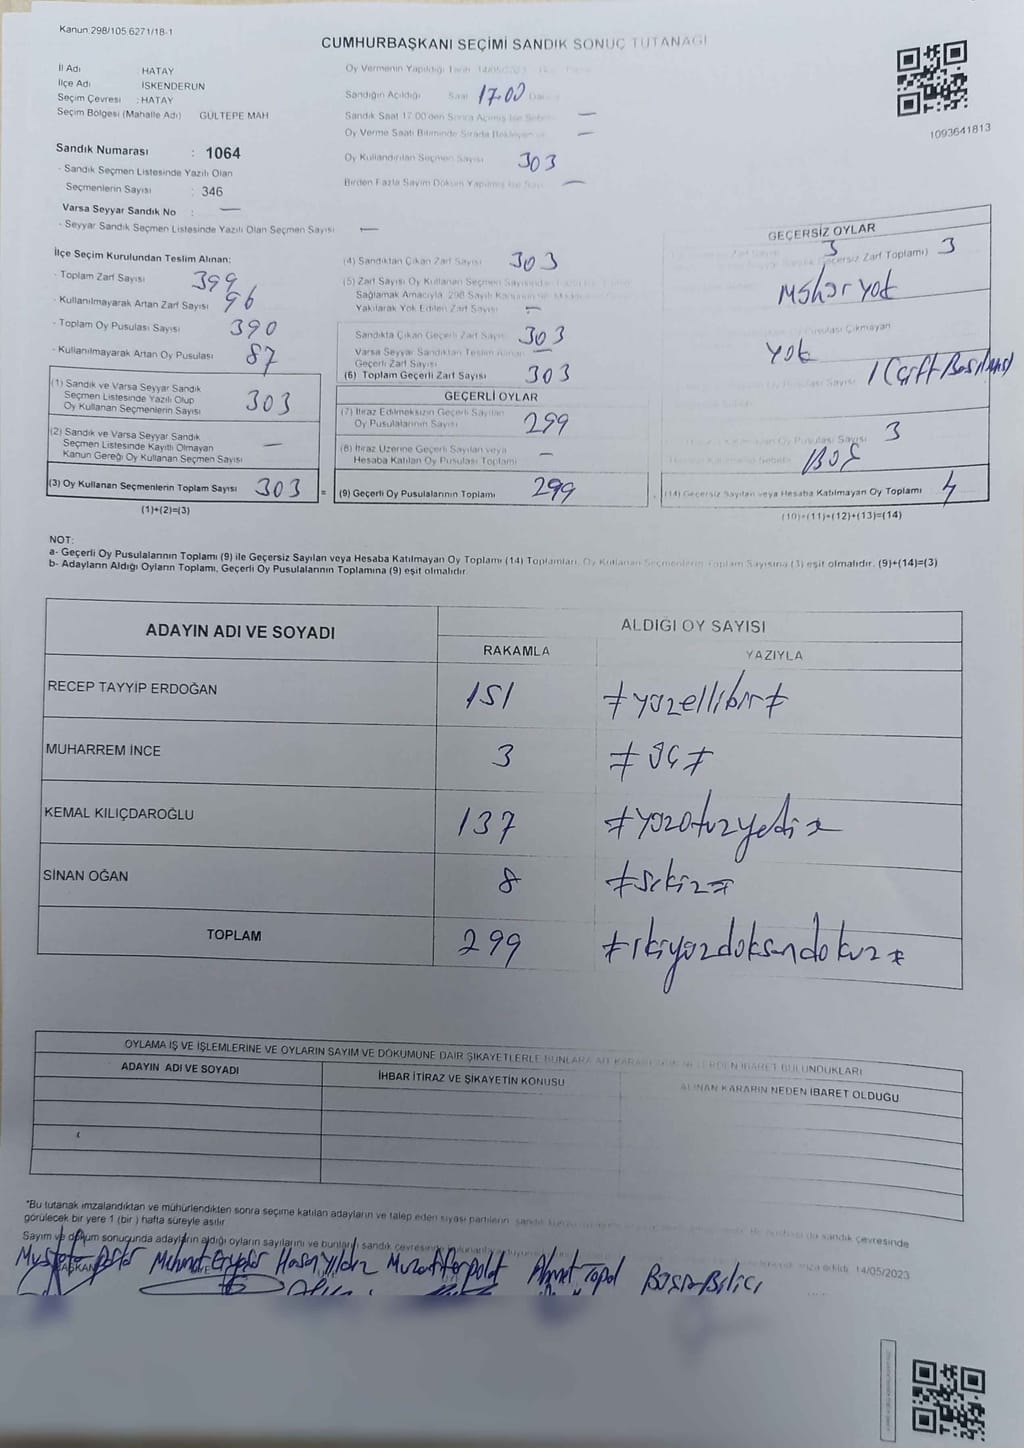 Kanun:298/105 6271/18-1
CUMHURBAŞKANI SEÇİMİ SANDIK SONUÇ TUTANAĞI
İl Adı HATAY
İlçe Adı İSKENDERUN
Seçim Çevresi : HATAY
Seçim Bölgesi (Mahalle Adı) GÜLTEPE MAH
Oy Vermenin Yapıldığı Tarih 14/05/2023
Sandığın Açıldığı Saat 17.00
Sandık Saat 17.00'den Sonra Açılmış İse Sebebi —
Oy Verme Saati Bitiminde Sırada Bekleyen —
1093641813
Sandık Numarası : 1064
- Sandık Seçmen Listesinde Yazılı Olan
Seçmenlerin Sayısı : 346
Varsa Seyyar Sandık No : —
- Seyyar Sandık Seçmen Listesinde Yazılı Olan Seçmen Sayısı —
Oy Kullandırılan Seçmen Sayısı 303
Birden Fazla Sayım Döküm Yapılmış İse Sayısı —
İlçe Seçim Kurulundan Teslim Alınan:
- Toplam Zarf Sayısı 399
- Kullanılmayarak Artan Zarf Sayısı 96
- Toplam Oy Pusulası Sayısı 390
- Kullanılmayarak Artan Oy Pusulası 87
(1) Sandık ve Varsa Seyyar Sandık
Seçmen Listesinde Yazılı Olup
Oy Kullanan Seçmenlerin Sayısı 303
(2) Sandık ve Varsa Seyyar Sandık
Seçmen Listesinde Kayıtlı Olmayan
Kanun Gereği Oy Kullanan Seçmen Sayısı —
(3) Oy Kullanan Seçmenlerin Toplam Sayısı 303 =
(1)+(2)=(3)
(4) Sandıktan Çıkan Zarf Sayısı 303
(5) Zarf Sayısı Oy Kullanan Seçmen Sayısından
Sağlamak Amacıyla, 298 Sayılı Kanunun
Yakılarak Yok Edilen Zarf Sayısı —
Sandıkta Çıkan Geçerli Zarf Sayısı 303
Varsa Seyyar Sandıktan Teslim Alınan
Geçerli Zarf Sayısı —
(6) Toplam Geçerli Zarf Sayısı 303
GEÇERLİ OYLAR
(7) İtiraz Edilmeksizin Geçerli Sayılan
Oy Pusulalarının Sayısı 299
(8) İtiraz Üzerine Geçerli Sayılan veya
Hesaba Katılan Oy Pusulası Toplamı —
(9) Geçerli Oy Pusulalarının Toplamı 299
GEÇERSİZ OYLAR
3
Geçersiz Zarf Toplamı) 3
Mühür yok
Pusulası Çıkmayan
Yok
Pusulası Sayısı 1 (Çift Basılmış)
Oy Pusulası Sayısı 3
BOŞ
(14) Geçersiz Sayılan veya Hesaba Katılmayan Oy Toplamı 4
(10)+(11)+(12)+(13)=(14)
NOT:
a- Geçerli Oy Pusulalarının Toplamı (9) ile Geçersiz Sayılan veya Hesaba Katılmayan Oy Toplamı (14) Toplamları, Oy Kullanan Seçmenlerin Toplam Sayısına (3) eşit olmalıdır. (9)+(14)=(3)
b- Adayların Aldığı Oyların Toplamı, Geçerli Oy Pusulalarının Toplamına (9) eşit olmalıdır.
ADAYIN ADI VE SOYADI
ALDIĞI OY SAYISI
RAKAMLA YAZIYLA
RECEP TAYYİP ERDOĞAN 151 ≠yüzellibir≠
MUHARREM İNCE 3 ≠üç≠
KEMAL KILIÇDAROĞLU 137 ≠yüzotuzyedi≠
SİNAN OĞAN 8 ≠sekiz≠
TOPLAM 299 ≠ikiyüzdoksandokuz≠
OYLAMA İŞ VE İŞLEMLERİNE VE OYLARIN SAYIM VE DÖKÜMÜNE DAİR ŞİKAYETLERLE BUNLARA AİT KARARLARIN NELERDEN İBARET BULUNDUKLARI
ADAYIN ADI VE SOYADI İHBAR İTİRAZ VE ŞİKAYETİN KONUSU ALINAN KARARIN NEDEN İBARET OLDUĞU
*Bu tutanak imzalandıktan ve mühürlendikten sonra seçime katılan adayların ve talep eden siyasi partilerin sandık çevresinde
görülecek bir yere 1 (bir) hafta süreyle asılır.
Sayım ve döküm sonucunda adayların aldığı oyların sayılarını ve bunların sandık çevresinde imza edildi. 14/05/2023
BAŞKAN
Mehmet Hasan Yıldız Muzaffer polat Ahmet Topal Büşra Bilici